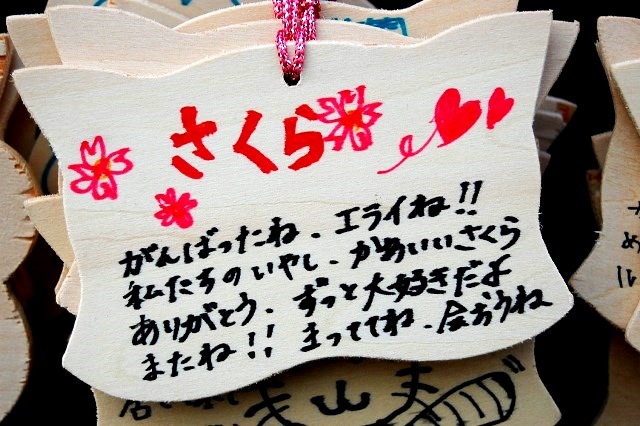 さくら
がんばったね、エライね!!
私たちのいやし、かあいいさくら
ありがとう、ずっと大好きだよ
またね!! まっててね、会おうね